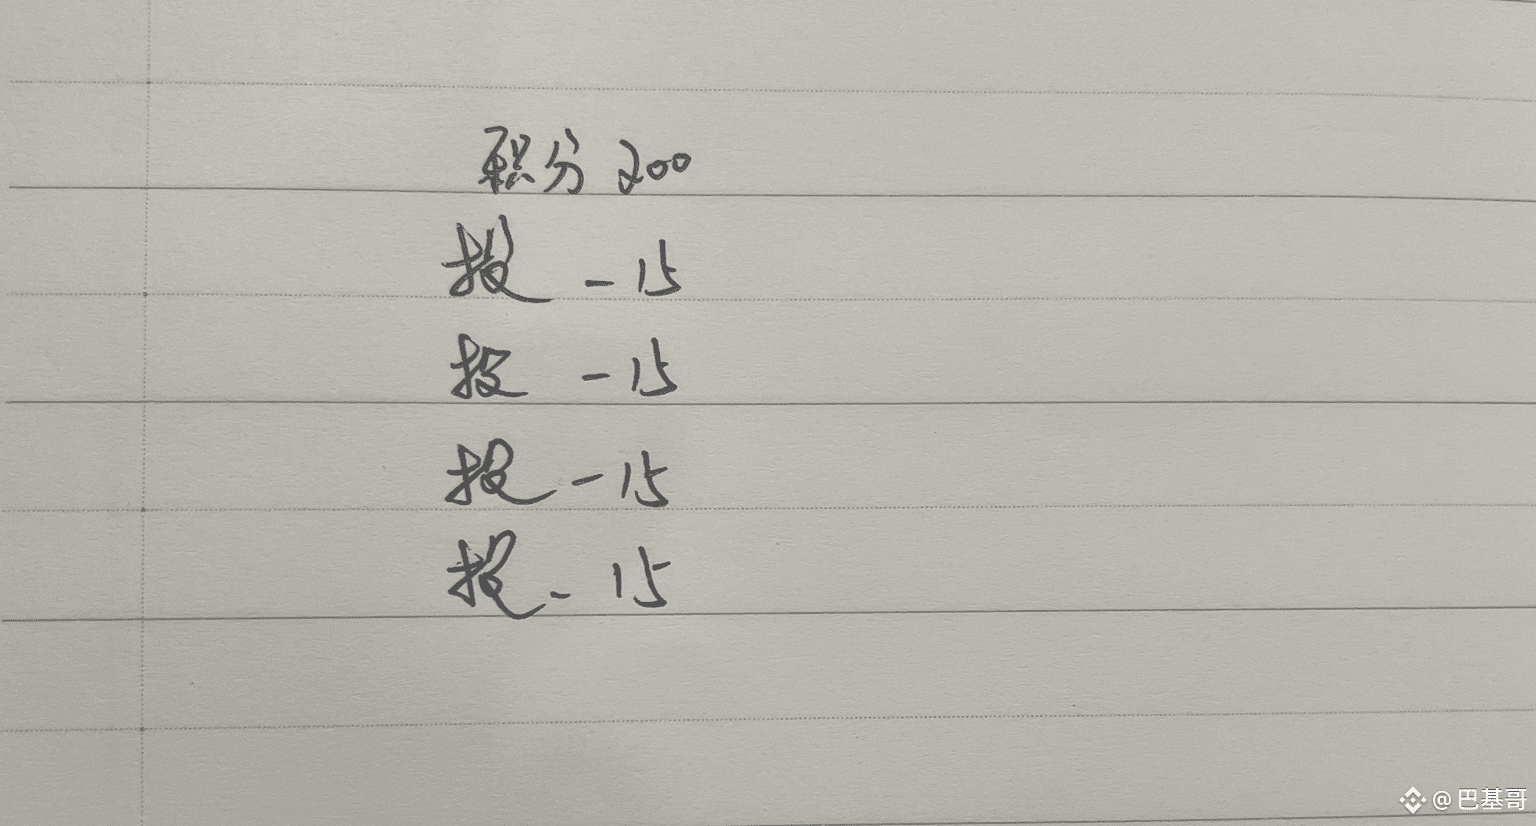 积分 200
投 - 15
投 - 15
投 - 15
投 - 15
@巴基哥